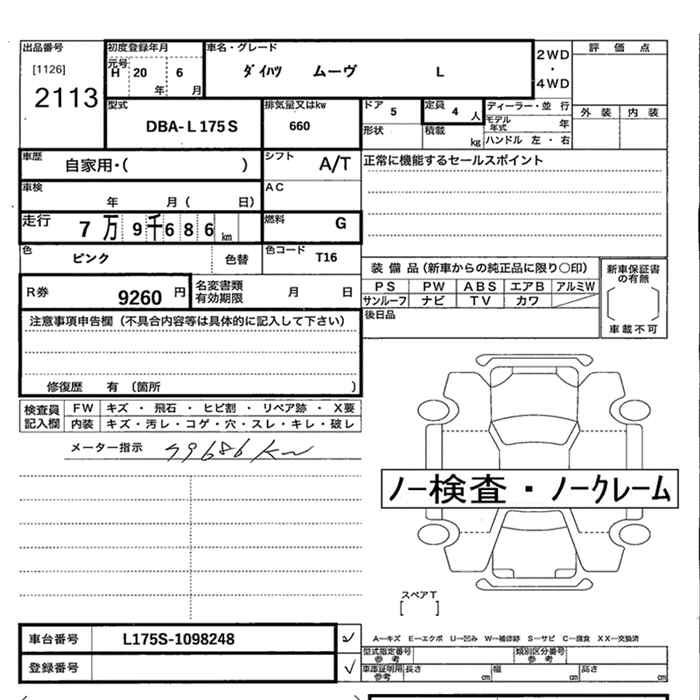 出品番号 初度登録年月 車名・グレード 2WD 評 価 点
[1126] 元号 H 20 6 ﾀﾞｲﾊﾂ ムーヴ L ・
2113 年 月 4WD
型式 排気量又はkw ドア 5 定員 4 人 ディーラー・並 行 外 装 内 装
DBA-L175S 660 形状 積載 kg モデル年式 年
ハンドル 左 ・ 右
車歴 自家用・( ) シフト A/T 正常に機能するセールスポイント
車検 年 月 ( 日) AC
走行 7 万 9 千 6 8 6 km 燃料 G
色 ピンク 色替 色コード T16
装 備 品 (新車からの純正品に限り○印) 新車保証書の有無
R券 9260 円 名変書類有効期限 月 日 PS PW ABS エアB アルミW
サンルーフ ナビ TV カワ
注意事項申告欄 (不具合内容等は具体的に記入して下さい) 後日品 車載不可
修復歴 有 (箇所 )
検査員記入欄 FW キズ ・ 飛石 ・ ヒビ割 ・ リペア跡 ・ X要
内装 キズ・汚レ・コゲ・穴・スレ・キレ・破レ
メーター指示 79686 km
ノー検査・ノークレーム
スペアT
[ ]
車台番号 L175S-1098248 A―キズ E―エクボ U―凹み W―補修跡 S―サビ C―腐食 XX―交換済
型式指定番号参考 類別区分番号参考
登録番号 車庫証明用参考 長さ cm 幅 cm 高さ cm